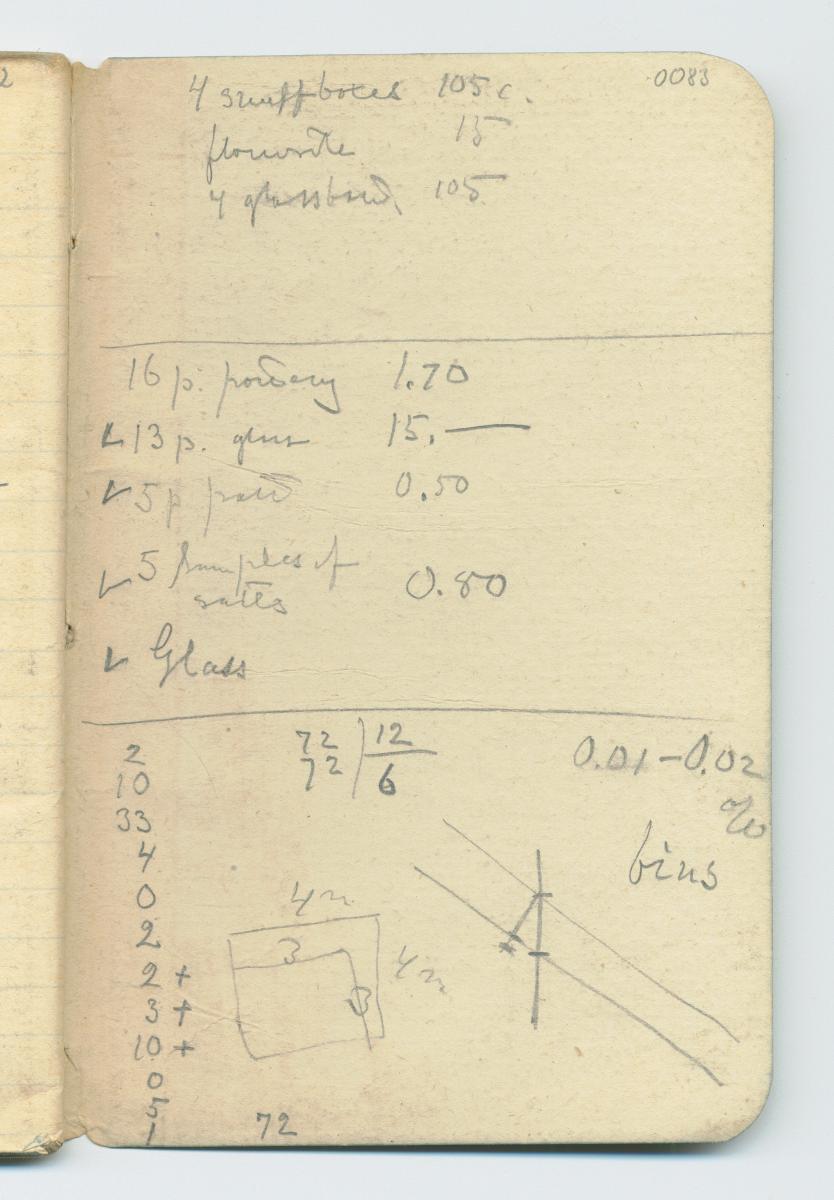 2
0083
4 snuffboxes 105 c.
fluorite 15
4 105
16 p. pottery 1.70
✓ 13 p. glass 15.—
✓ 5 p 0.50
✓ 5 samples of
salts 0.80
✓ Glass
72 | 12
72 | 6
0.01-0.02
%
bins
2
10
33
4
0
2
2 +
3 +
10 +
0
5
1
72
4m
3
4m
3